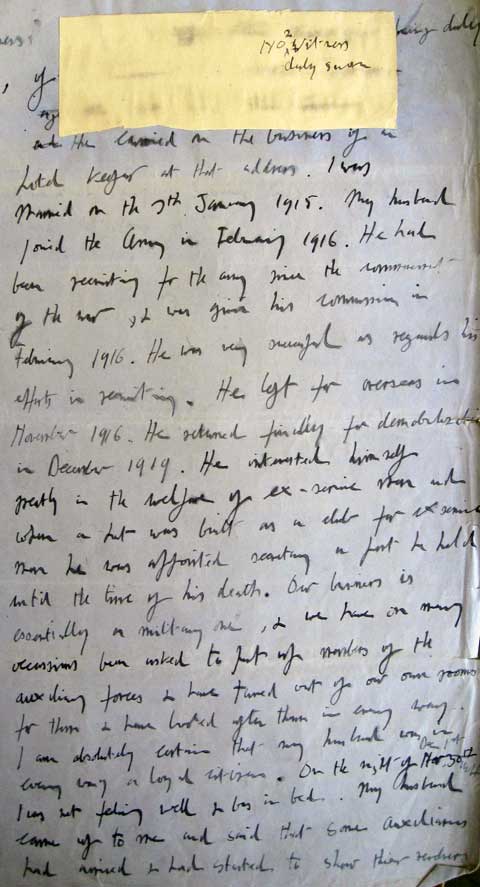 being duly
No 2 Witness
duly sworn
of
he carried on the business of a
hotel keeper at that address. I was
Married on the 7th January 1915. My husband
joined the Army in February 1916. He had
been recruiting for the army since the commencement
of the war, & was given his commission in
February 1916. He was very successful as regards his
efforts in recruiting. He left for overseas in
November 1916. He returned finally for demobilisation
in December 1919. He interested himself
greatly in the welfare of ex-service men and
when a hut was built as a club for ex service
men he was appointed secretary a post he held
until the time of his death. Our business is
essentially a military one, & we have on many
occasions been asked to put up members of the
auxiliary forces & have turned out of our own rooms
for them & have looked after them in every way.
I am absolutely certain that my husband was in
every way a loyal citizen. On the night of
I was not feeling well & was in bed. My husband
came up to me and said that some auxiliaries
had arrived & had started to show their revolvers